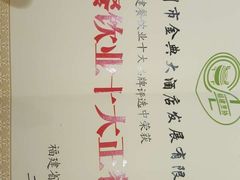 市金典大酒店发展有限
建餐饮业十大 牌评选中荣获
餐饮业十大
福建省